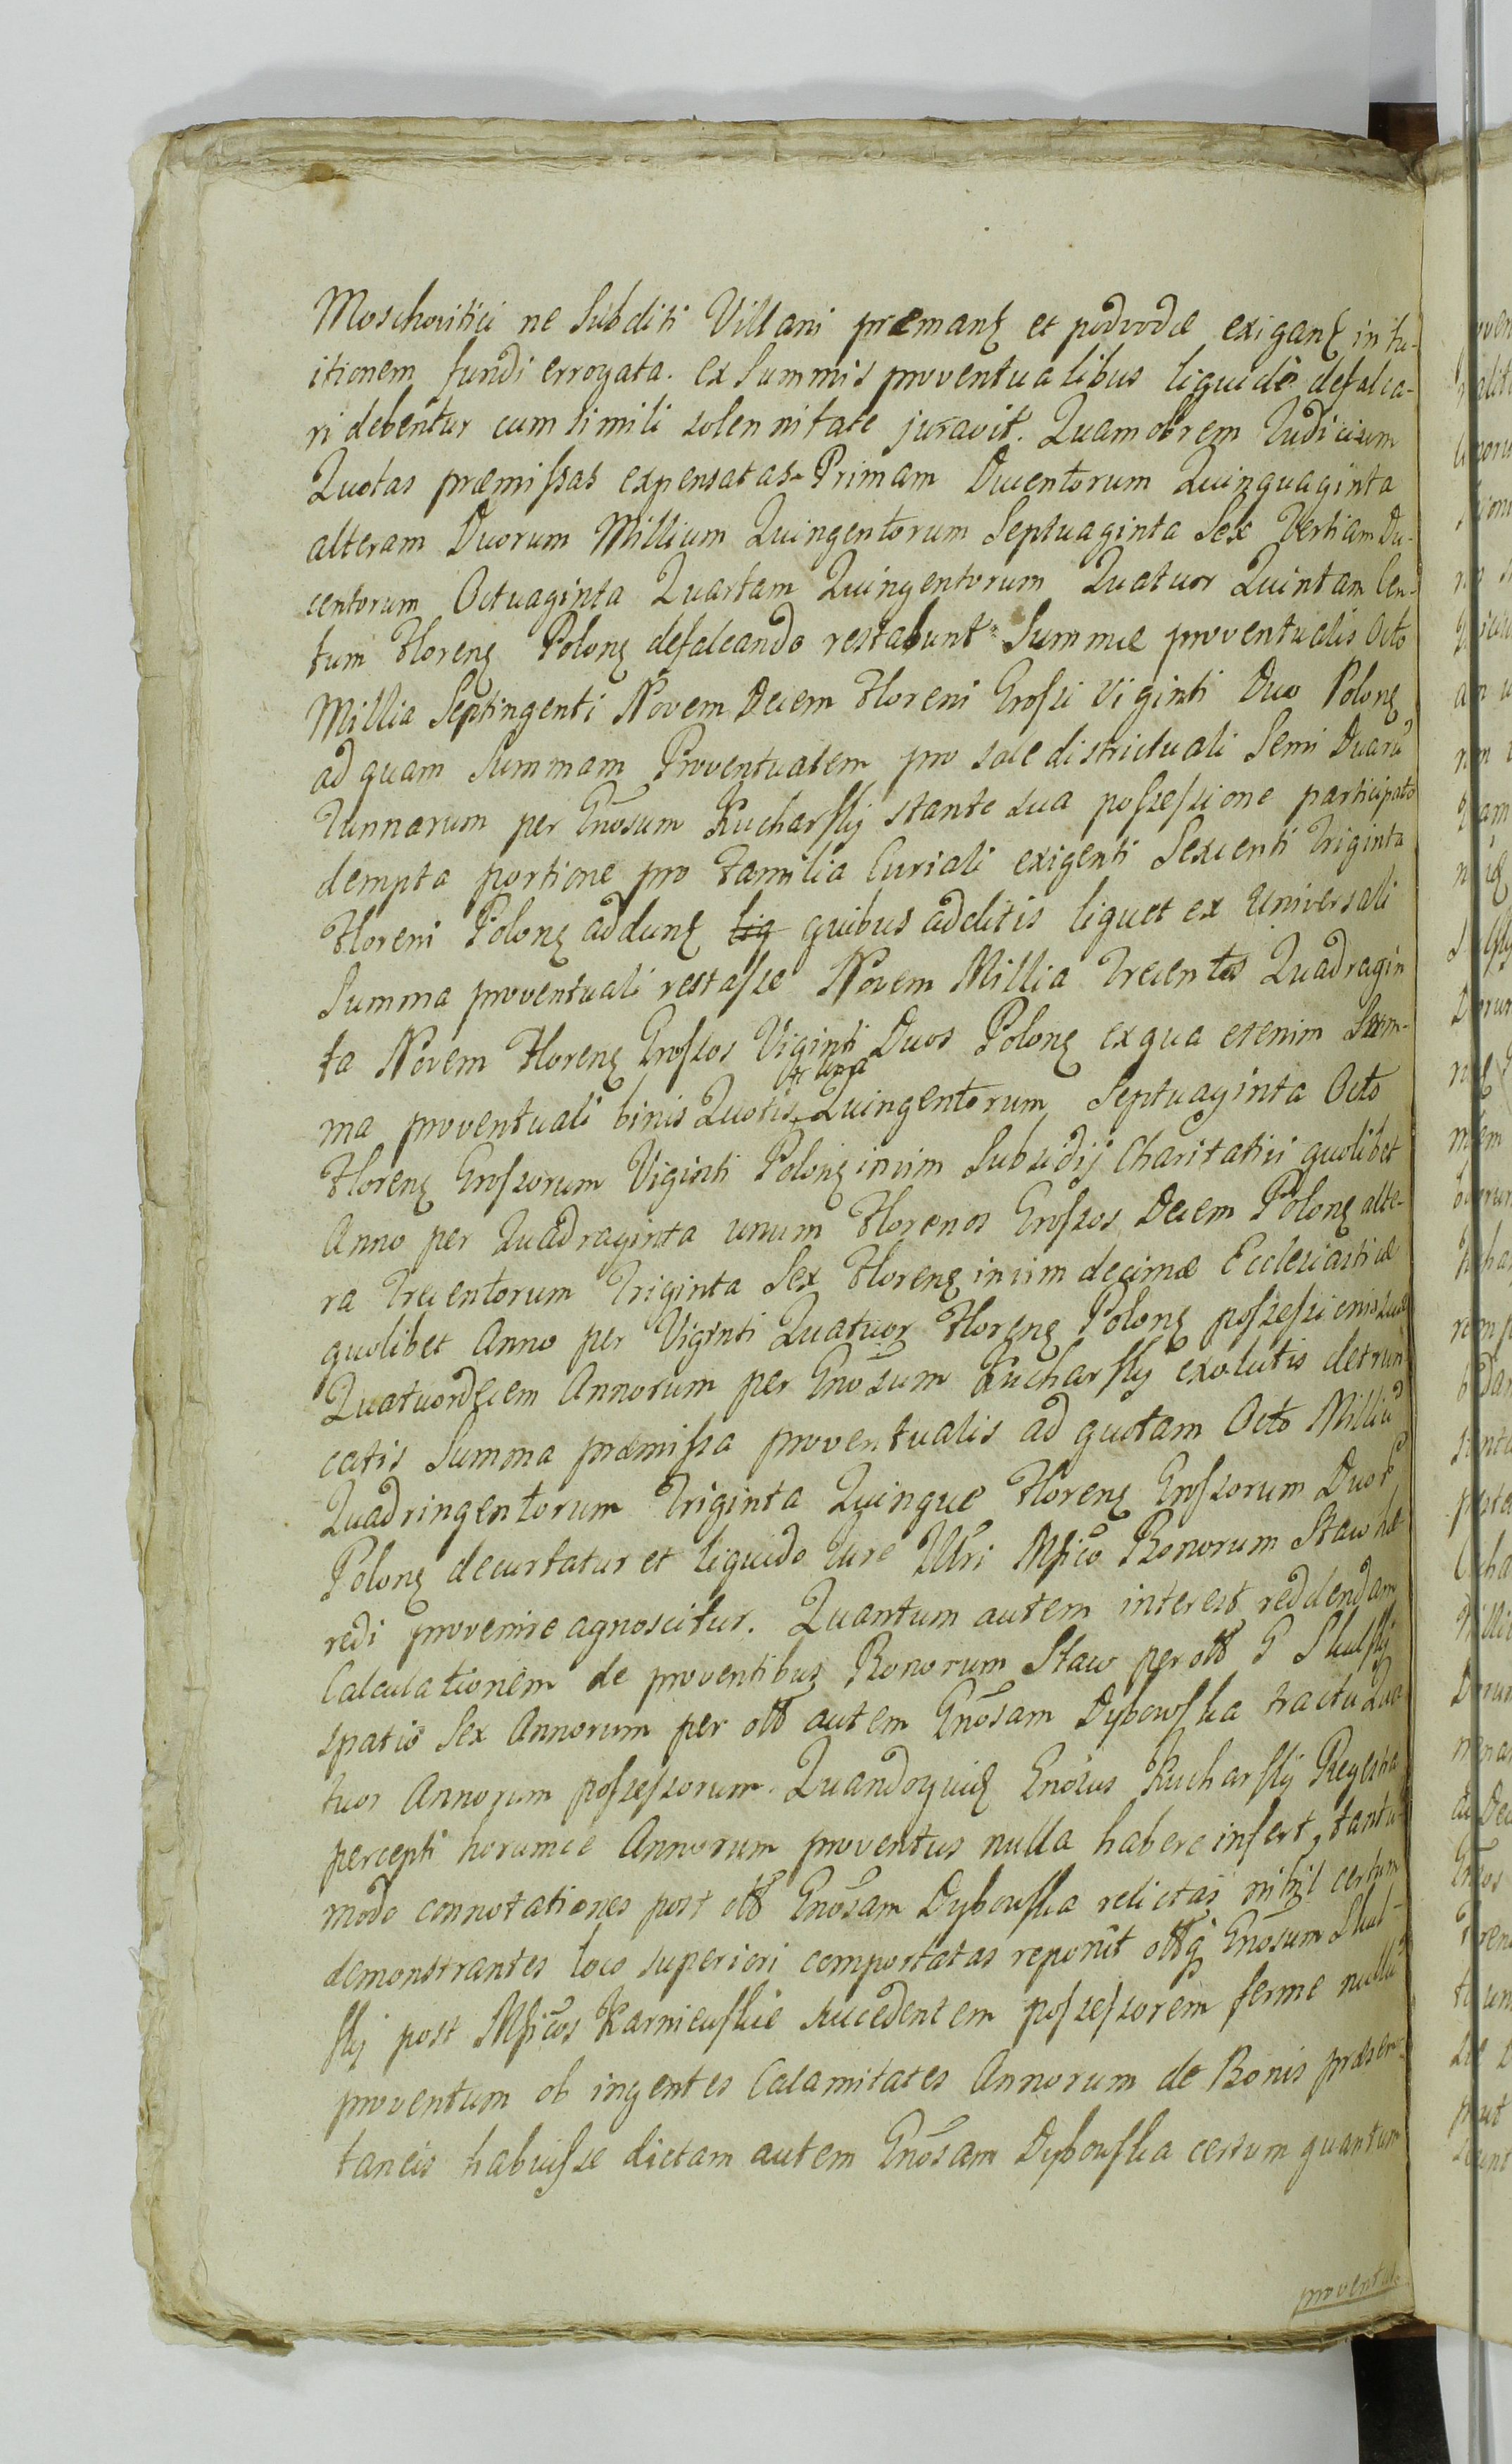 Moschovitici ne Subditi Villani præmanꝫ et podvodæ exiganꝫ in tu-
itionem fundi errogata. ex Summis proventualibus liquidè defalca-
ri debentur cum simili solennitate juravit. Quamobrem Judicium
Quotas præmissas expensatas Primam Ducentorum Quinquaginta
alteram Duorum Millium Quingentorum Septuaginta Sex Tertiam Du-
centorum Octuaginta Quartam Quingentorum Quatuor Quintam Cen-
tum Florenꝫ Polonꝫ defalcando restabunt Summæ proventualis Octo
Millia Septingenti Novem Decem Floreni Grossi Viginti Duo Polonꝫ
ad quam Summam Proventualem pro sale districtuali Semi Duarũ
Tunnarum per Gnõsum Kucharsky stante sua possessione participato
dempta portione pro Familia Curiali exigenti Sexcenti Triginta
Floreni Polonꝫ addunꝫ liq quibus additis liquet ex Universali
Summa proventuali restasse Novem Millia Trecentos Quadragin
ta Novem Florenꝫ Grossos Viginti Duos Polonꝫ ex qua etenim Sum-
ma proventuali binis Quotis Quingentorum Septuaginta Octo
Florenꝫ Grossorum Viginti Polonꝫ in vim Subsidij Charitativi quolibet
Anno per Quadraginta unum Florenos Grossos Decem Polonꝫ alte-
ra Trecentorum Triginta Sex Florenꝫ in vim decimæ Ecclesiasticæ
quolibet Anno per Viginti Quatuor Florenꝫ Polonꝫ possessionis suæ
Quatuordecem Annorum per Gnõsum Kucharsky exolutis detrun
catis Summa præmissa proventualis ad quotam Octo Milliũ
Quadringentorum Triginta Quinque Florenꝫ Grossorum Duor
Polonꝫ decurtatur et liquido Jure Illri Mfico Bonorum Staw hæ
redi provenire agnoscitur. Quantum autem interest reddendam
Calculationem de proventibus Bonorum Staw per olĩ G Skulsky
spatio Sex Annorum per olĩ autem Gnõsam Dybowska tractu Qua
tuor Annorum possessorum. Quandoquidꝫ Gnõsus Kucharsky Regestra
percepti horumce Annorum proventus nulla habere infert, tantu
modo connotationes post olĩ Gnõsam Dybowska relictas nihil certum
demonstrantes loco superiori comportatas reponit Gnõsum Skul-
sky post Mficos Karniewskie succedentem possessorem ferme nullũ
proventum ob ingentes Calamitates Annorum de Bonis præsen-
taneis habuisse dictam autem Gnõsam Dybowska certum quantum
proventus